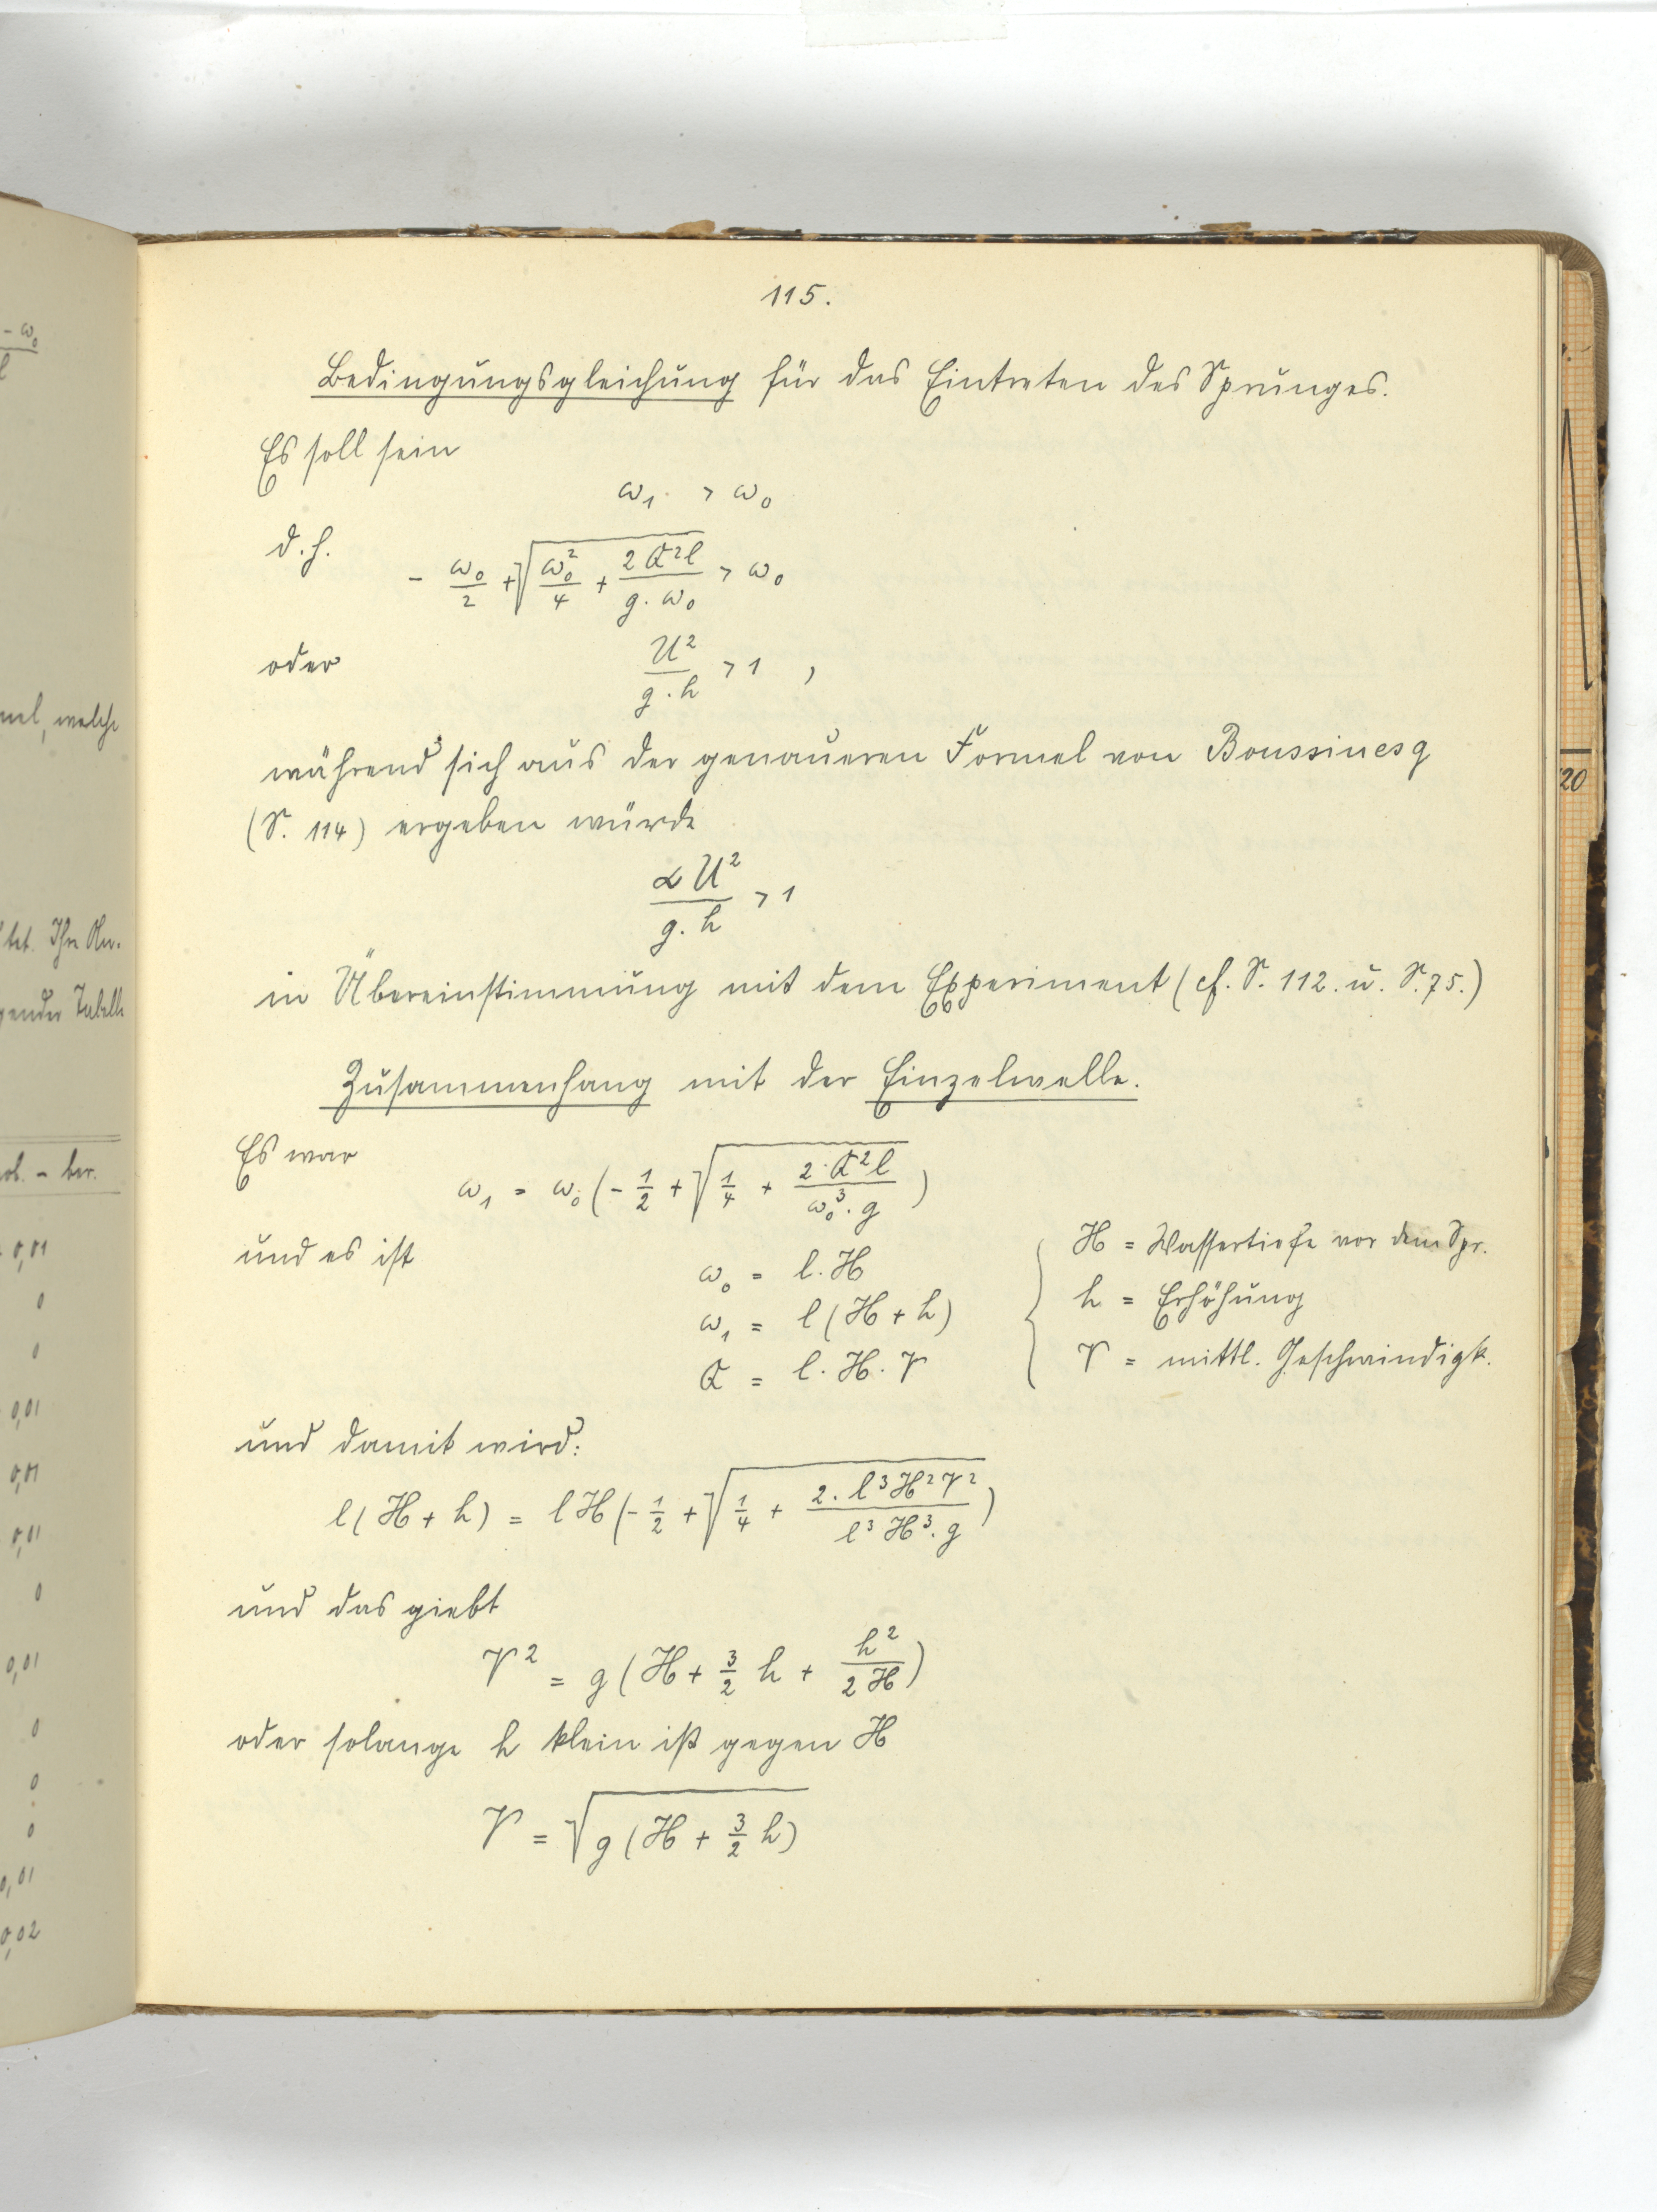 115.
Bedingungsgleichung für das Eintreten des Sprunges.
Es soll sein
ω₁ > ω₀
d.h. - ω₀/2 + √(ω₀²/4 + 2Q²l/(g·ω₀)) > ω₀
oder U²/(g·h) > 1 ,
während sich aus der genaueren Formel von Boussinesq
(S. 114) ergeben würde
αU²/(g·h) > 1
in Übereinstimmung mit dem Experiment (cf. S. 112. u. S. 75.)
Zusammenhang mit der Einzelwelle.
Es war
ω₁ = ω₀(-1/2 + √(1/4 + 2·Q²l/(ω₀³·g)))
und es ist
ω₀ = l·H
ω₁ = l(H + h)
Q = l·H·V
H = Wassertiefe vor dem Spr.
h = Erhöhung
V = mittl. Geschwindigk.
und damit wird:
l(H + h) = lH(-1/2 + √(1/4 + 2·l³H²V²/(l³H³·g)))
und das giebt
V² = g(H + 3/2 h + h²/(2H))
oder solange h klein ist gegen H
V = √(g(H + 3/2 h))
- ω₀
l
welche
Tabelle
- ber.
0,01
0
0
0,01
0,01
0,01
0
0,01
0
0
0
0,01
0,02
20